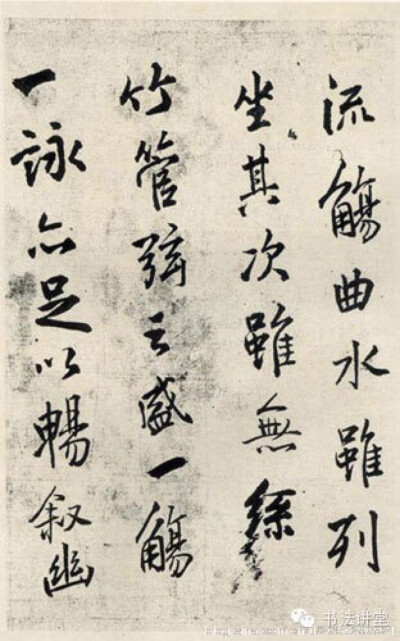 流觴曲水雖列
坐其次雖無絲
竹管弦之盛一觴
一詠亦足以暢叙幽
书法讲堂